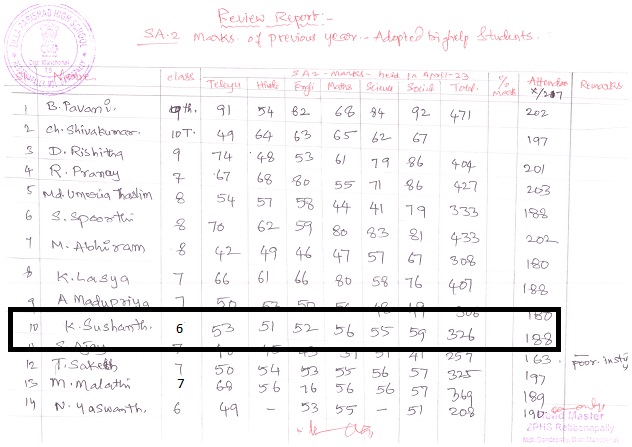 Review Report:-
SA-2 Marks of previous year - Adopted by help Students.
ZILLA PARISHAD HIGH SCHOOL
Name class SA2 - marks - held in April-23 Attendance
Telugu Hindi Engli Maths Science Social Total Remarks
1 B. Pavani. 91 54 82 68 84 92 471 202
2 Ch. Shivakumar. 10T. 49 64 63 65 62 67 197
3 D. Rishitha 9 74 48 53 61 79 86 404 201
4 R. Pranay 7 67 68 80 55 71 86 427 203
5 Md. Thaslim 8 54 57 58 44 41 79 333 188
6 S. Spoorthi 8 70 62 59 80 83 81 433 202
7 M. Abhiram 8 42 49 46 47 57 67 308 180
8 K. Lasya 7 66 61 66 80 58 76 407 188
9 A Madupriya 7 50
10 K. Sushanth. 6 53 51 52 56 55 59 326 188
S. Ajay 7 41 257 163. poor
12 T. Saketh 7 50 54 53 55 56 57 325 197
13 M. Malathi 7 68 56 76 56 56 57 369 189
14 N. Yaswanth. 6 49 - 53 55 - 51 208 190
Head Master
ZPHS Rebbanapally